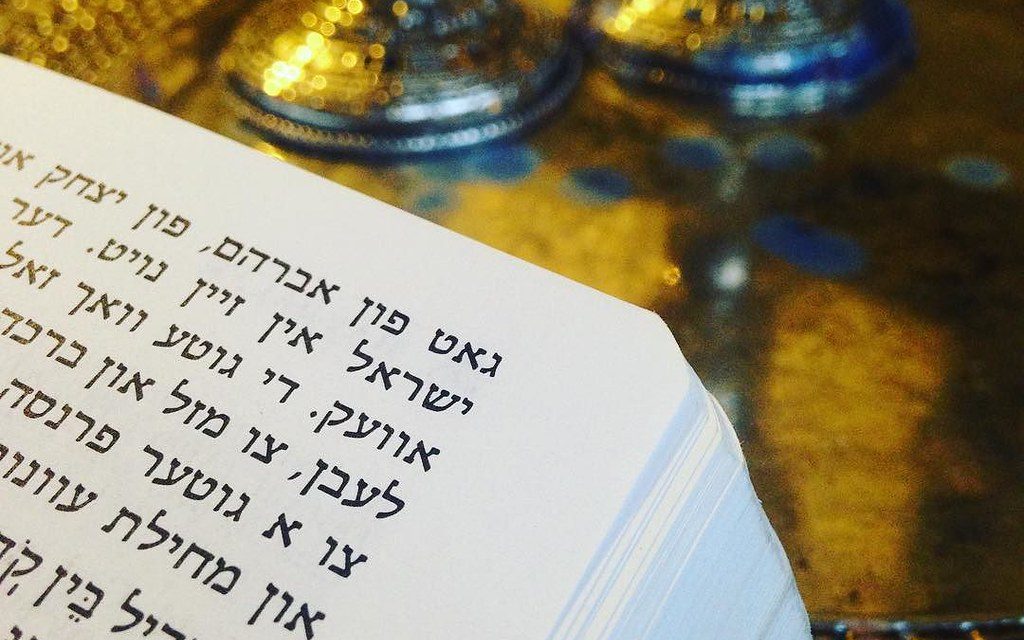 גאט פון אברהם, פון יצחק
ישראל אין זיין נויט. דער
אוועק. די גוטע וואך זאל
לעבן, צו מזל און
צו א גוטער פרנסה
און מחילת
בֵּין